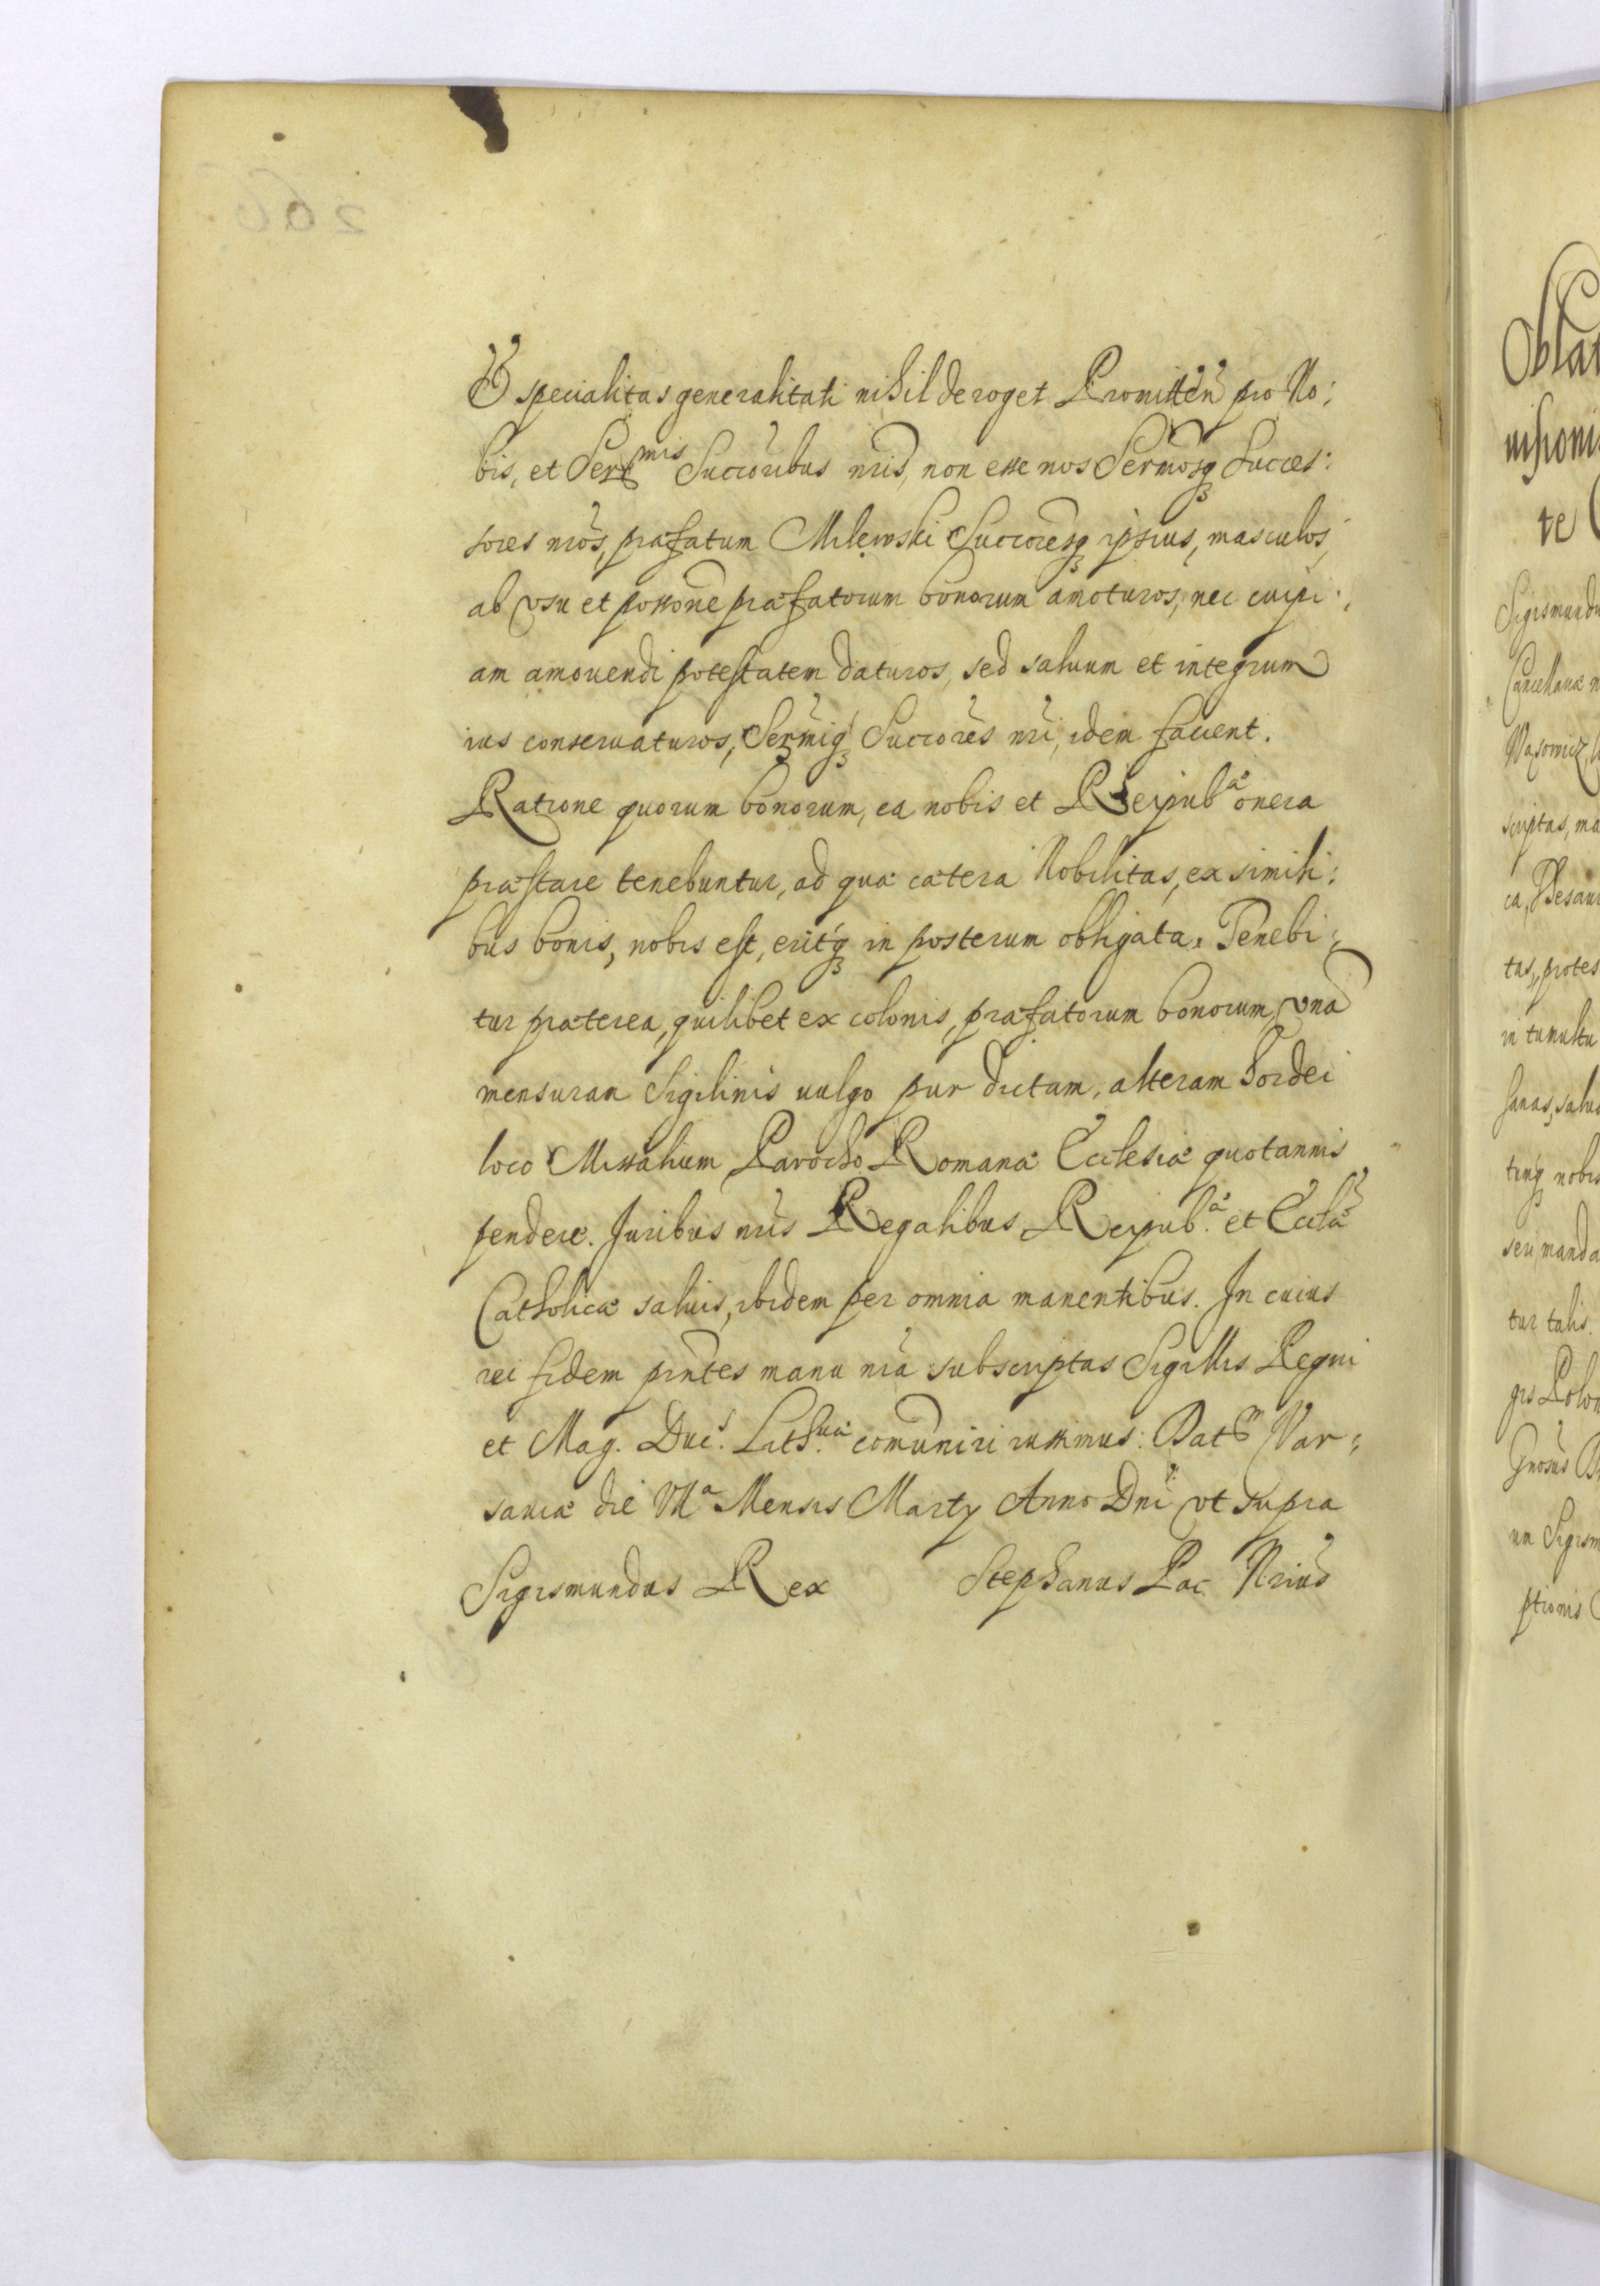 Et specialitas generalitati nihil deroget Promitten̄ pro No:
bis, et Serᵐⁱˢ Succoribus nr̄is, non esse nos Sermosq Succes:
sores nr̄os, præfatum Milewski Succoresq ipsius, masculos,
ab vsu et possone præfatorum bonorum amoturos, nec cuipi:
am amouendi potestatem daturos, sed saluum et integrum
ius conseruaturos, Sermiq Succores nr̄i, idem facient.
Ratione quorum bonorum, ea nobis et Reipubᵃ onera
præstare tenebuntur, ad quæ cætera Nobilitas, ex simili:
bus bonis, nobis est, eritq in posterum obligata. Tenebi:
tur præterea, quilibet ex colonis, præfatorum bonorum, vna
mensuran Sigilinis uulgo pur dictam, alteram hordei
loco Missalium Parocho Romanæ Ecclesiæ quotannis
pendere. Juribus nr̄is Regalibus Reipub.ᵃ et Ecclæ
Catholicæ saluis, ibidem per omnia manentibus. In cuius
rei fidem pn̄tes manu nr̄a subscriptas Sigillis Regni
et Mag. Duc. Lith.ᵘᵃ com̄uniri iussimus. Datᵐ Var:
sauiæ die Mensis Martÿ Anno Dn̄i vt supra
Sigismundus Rex Stephanus Pac Nrius
Oblat
nisioni
te
Sigismundu
Cancellariæ n
scriptas, ma
tas, protes
in tumultu
tumq nobis
seri manda
tur talis.
gis Polon
Gnosus
um Sigism
ptionis